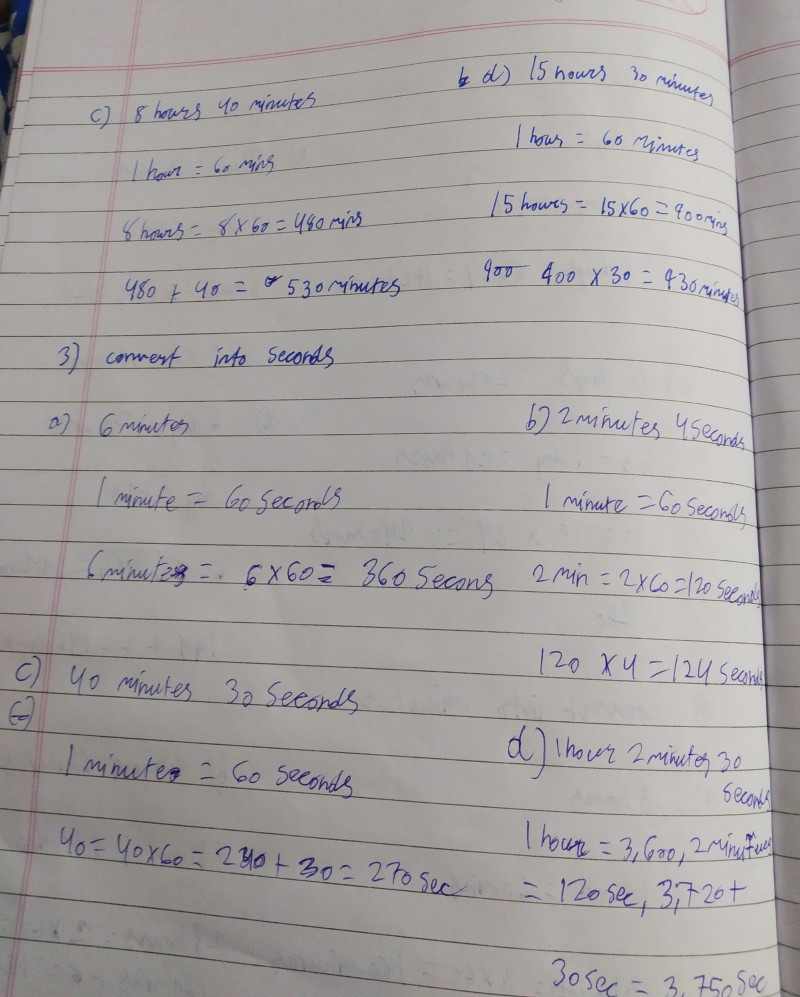 c) 8 hours 40 minutes
1 hour = 60 mins
8 hours = 8 x 60 = 480 mins
480 + 40 = 530 minutes
d) 15 hours 30 minutes
1 hour = 60 minutes
15 hours = 15 x 60 = 900 mins
900 400 x 30 = 930 minutes
3) convert into seconds
a) 6 minutes
1 minute = 60 seconds
6 minutes = 6 x 60 = 360 Secons
b) 2 minutes 4 seconds
1 minute = 60 seconds
2 min = 2 x 60 = 120 seconds
120 x 4 = 124 seconds
c) 40 minutes 30 seconds
1 minute = 60 seconds
40 = 40 x 60 = 240 + 30 = 270 sec
d) 1 hour 2 minutes 30
seconds
1 hour = 3,600, 2 minutes
= 120 sec, 3,720 +
30 sec = 3,750 sec